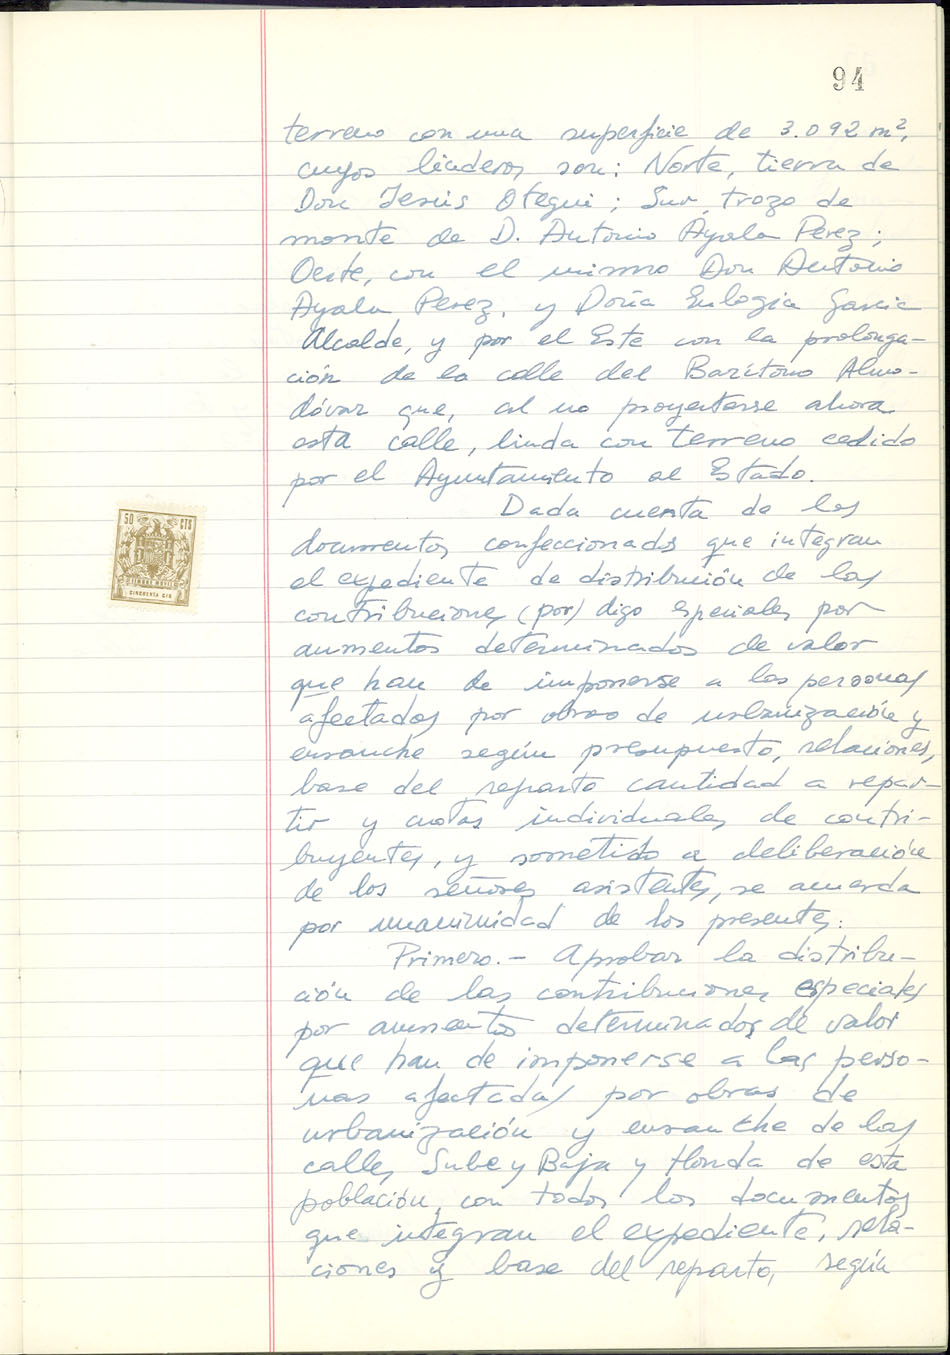 94
terreno con una superficie de 3.092 m²,
cuyos linderos son: Norte, tierra de
Don Jesús Otegui; Sur, trozo de
monte de D. Antonio Ayala Perez;
Oeste, con el mismo Don Antonio
Ayala Perez, y Doña Eulogia Garcia
Alcalde, y por el Este con la prolonga-
ción de la calle del Barítono Almo-
dóvar que, al no proyectarse ahora
esta calle, linda con terreno cedido
por el Ayuntamiento al Estado.
Dada cuenta de los
documentos confeccionados que integran
el expediente de distribución de las
contribuciones (por) digo especiales por
aumentos determinados de valor
que han de imponerse a las personas
afectadas por obras de urbanización y
ensanche según presupuesto, relaciones,
base del reparto cantidad a repar-
tir y cuotas individuales de contri-
buyentes, y sometido a deliberación
de los señores asistentes, se acuerda
por unanimidad de los presentes:
Primero.- Aprobar la distribu-
ción de las contribuciones especiales
por aumentos determinados de valor
que han de imponerse a las perso-
nas afectadas por obras de
urbanización y ensanche de las
calles Sube y Baja y Honda de esta
población, con todos los documentos
que integran el expediente, rela-
ciones y base del reparto, según
50 CTS
TIMBRE MOVIL
CINCUENTA CTS